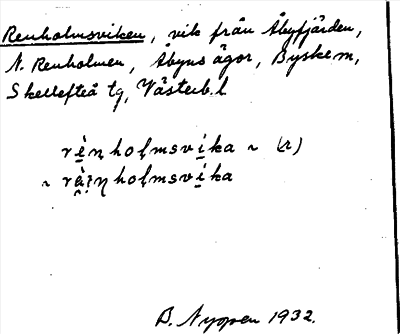 Renholmsviken, vik från Åbyfjärden,
N. Renholmen, Åbyns ägor, Byske m,
Skellefteå tg, Västerb. l
rè̱ŋholmsvi̱ka ~ (r)
~ rä̀iŋholmsvi̱ka
B. Nyopen 1932.